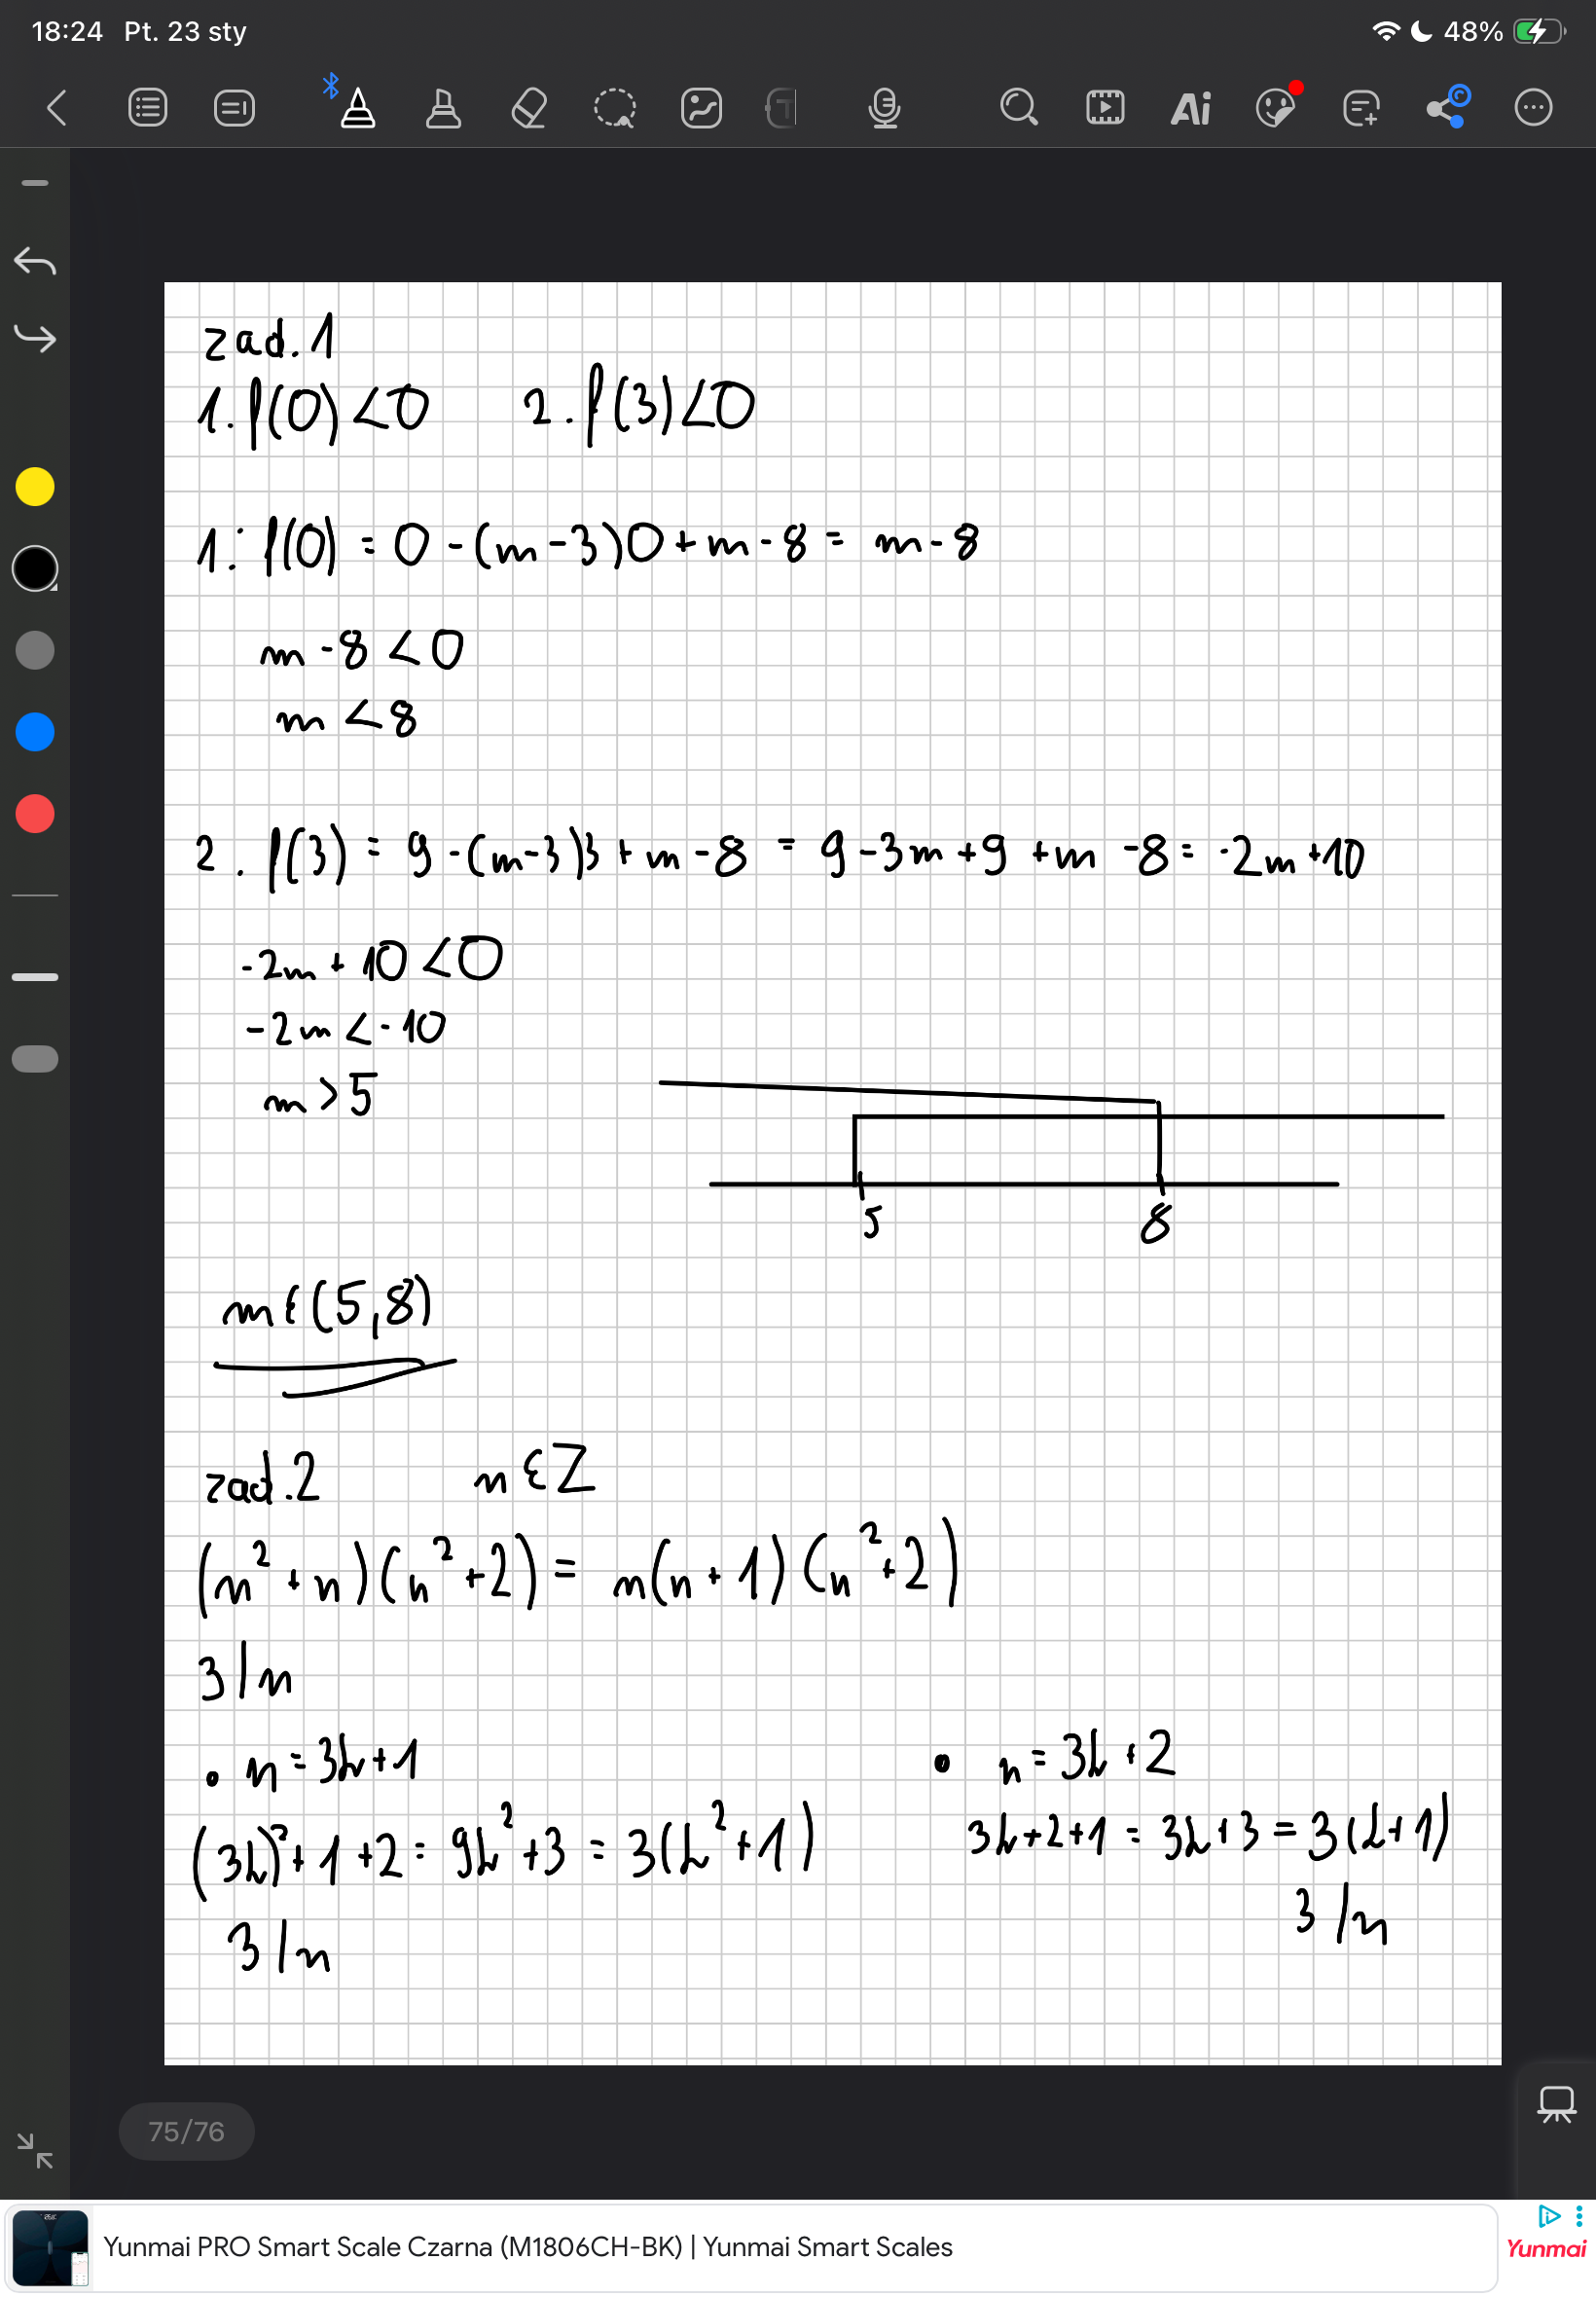 18:24 Pt. 23 sty 48%
Ai
zad. 1
1. f(0) < 0 2. f(3) < 0
1. f(0) = 0 - (m - 3)0 + m - 8 = m - 8
m - 8 < 0
m < 8
2. f(3) = 9 - (m - 3)3 + m - 8 = 9 - 3m + 9 + m - 8 = -2m + 10
-2m + 10 < 0
-2m < -10
m > 5
5 8
m ∈ (5, 8)
zad. 2 n ∈ Z
(n² + n)(n² + 2) = n(n + 1)(n² + 2)
3 | n
• n = 3k + 1 • n = 3k + 2
(3k)² + 1 + 2 = 9k² + 3 = 3(k² + 1) 3k + 2 + 1 = 3k + 3 = 3(k + 1)
3 | n 3 | n
75/76
Yunmai PRO Smart Scale Czarna (M1806CH-BK) | Yunmai Smart Scales
Yunmai